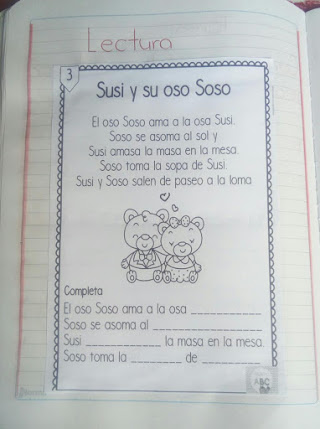 Lectura
3
Susi y su oso Soso
El oso Soso ama a la osa Susi.
Soso se asoma al sol y
Susi amasa la masa en la mesa.
Soso toma la sopa de Susi.
Susi y Soso salen de paseo a la loma
Completa
El oso Soso ama a la osa ___________
Soso se asoma al _________________
Susi ____________ la masa en la mesa.
Soso toma la ________ de _________
ABC